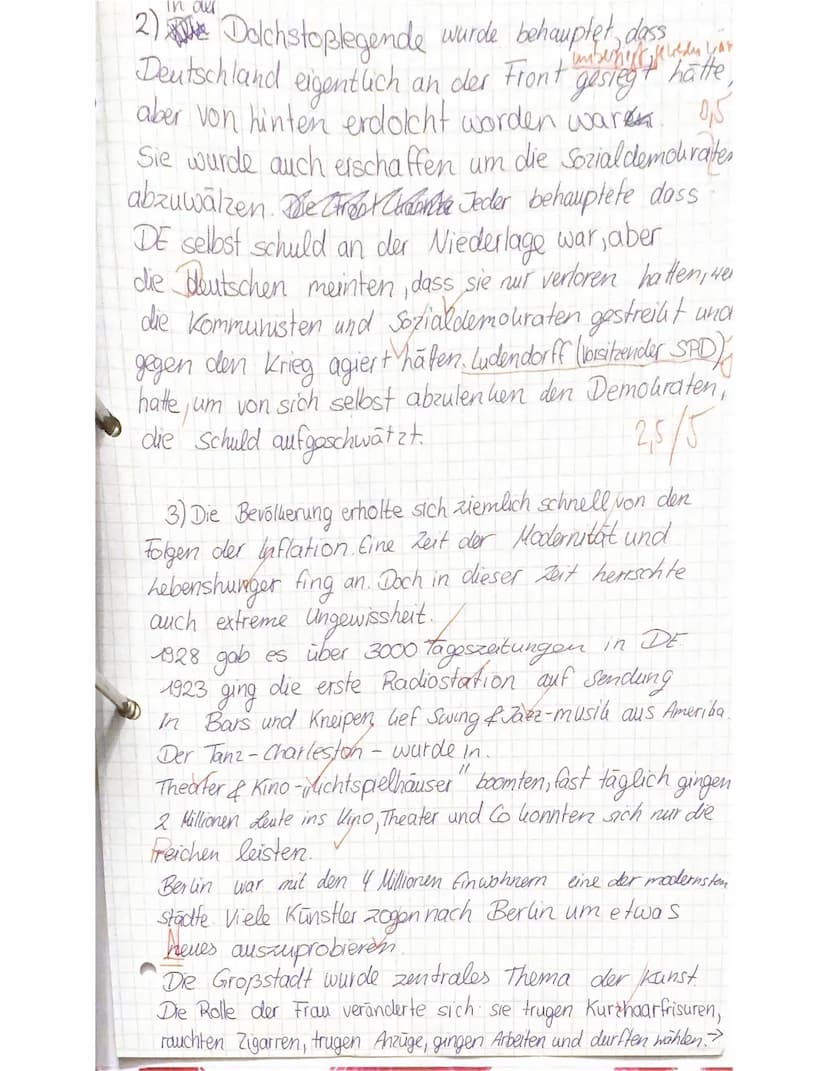 in der
2) Dolchstoßlegende wurde behauptet, dass
unbesiegt geblieben war
Deutschland eigentlich an der Front gesiegt hätte,
aber von hinten erdolcht worden war. 0,5
Sie wurde auch erschaffen um die Sozialdemokraten
abzuwälzen. Jeder behauptete dass
DE selbst schuld an der Niederlage war, aber
die deutschen meinten, dass sie nur verloren hatten, we
die Kommunisten und Sozialdemokraten gestreikt und
gegen den Krieg agiert häten. Ludendorff (Vorsitzender SPD)
hatte, um von sich selbst abzulenken den Demokraten,
die Schuld aufgeschwätzt. 2,5/5
3) Die Bevölkerung erholte sich ziemlich schnell von den
Folgen der Inflation. Eine Zeit der Modernität und
Lebenshunger fing an. Doch in dieser Zeit herrschte
auch extreme Ungewissheit.
1928 gab es über 3000 Tageszeitungen in DE
1923 ging die erste Radiostation auf Sendung
In Bars und Kneipen lief Swing & Jazz-musik aus Amerika.
Der Tanz - Charleston - wurde in.
Theater & Kino - „Lichtspielhäuser" boomten, fast täglich gingen
2 Millionen Leute ins Kino, Theater und Co konnten sich nur die
reichen leisten.
Berlin war mit den 4 Millionen Einwohnern eine der modernsten
städte. Viele Künstler zogen nach Berlin um etwas
Neues auszuprobieren.
Die Großstadt wurde zentrales Thema der Kunst.
Die Rolle der Frau veränderte sich: sie trugen Kurzhaarfrisuren,
rauchten Zigarren, trugen Anzüge, gingen Arbeiten und durften wählen. →